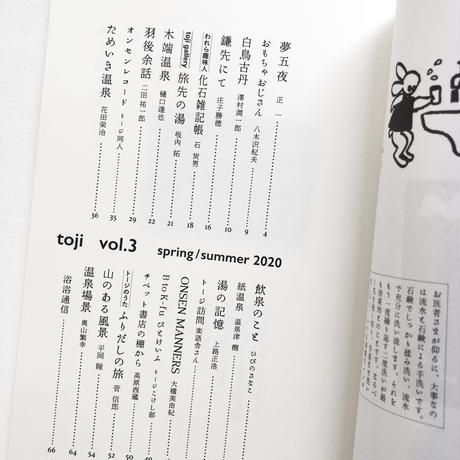 夢五夜 正一 4
おもちゃおじさん 八木沢紀夫 9
白鳥古丹 澤村潤一郎 10
鎌先にて 庄子勝徳 16
われら趣味人 化石雑記帳 石炭男 18
toji gallery 旅先の湯 坂内 拓 21
木端温泉 樋口達也 22
羽後余話 二田祐一郎 29
オンセンレコード トージ同人 35
ためいき温泉 花田栄治 36
toji vol.3 spring/summer 2020
飲泉のこと ひびのさなこ
紙温泉 温泉津
湯の記憶 上路浩
トージ訪問 楽語舎さん
ONSEN MANNERS 大橋美由紀
B to K-fu びとけいふ トージこけし部 49
チベット書店の棚から 高原西蔵 50
トージのうた ふりだしの旅 菅 信郎 52
山のある風景 平岡 瞳 54
温泉場景 奥山繁幸 64
浴浴通信 66
お医者さまが仰るに、大事なの
は流水と石鹸による手洗いです。
石鹸でしっかり揉み洗い、流水
で充分に洗い流します。それを
もう一度繰り返す二度洗いが最
も効果的とのことです。なるべ